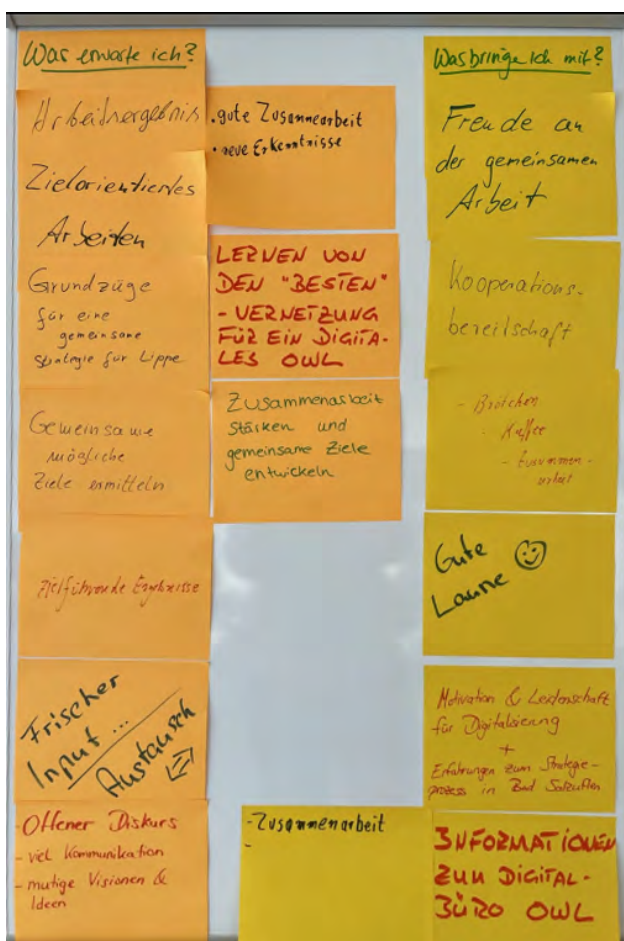 Was erwarte ich?
Arbeitsergebnis
Zielorientiertes
Arbeiten
Grundzüge
für eine
gemeinsame
Strategie für Lippe
Gemeinsame
mögliche
Ziele ermitteln
Zielführende Ergebnisse
Frischer
Input ...
Austausch
- Offener Diskurs
- viel Kommunikation
- mutige Visionen &
Ideen
• gute Zusammearbeit
• neue Erkenntnisse
LERNEN VON
DEN "BESTEN"
- VERNETZUNG
FÜR EIN DIGITA-
LES OWL
Zusammenarbeit
Stärken und
gemeinsame Ziele
entwickeln
Was bringe ich mit?
Freude an
der gemeinsamen
Arbeit
Kooperations-
bereitschaft
- Brötchen
- Kaffee
- Zusammen-
arbeit
Gute
Laune
Motivation & Leidenschaft
für Digitalisierung
+
Erfahrungen zum Strategie-
prozess in Bad Salzuflen
- Zusammenarbeit
-
INFORMATIONEN
ZUM DIGITAL-
BÜRO OWL